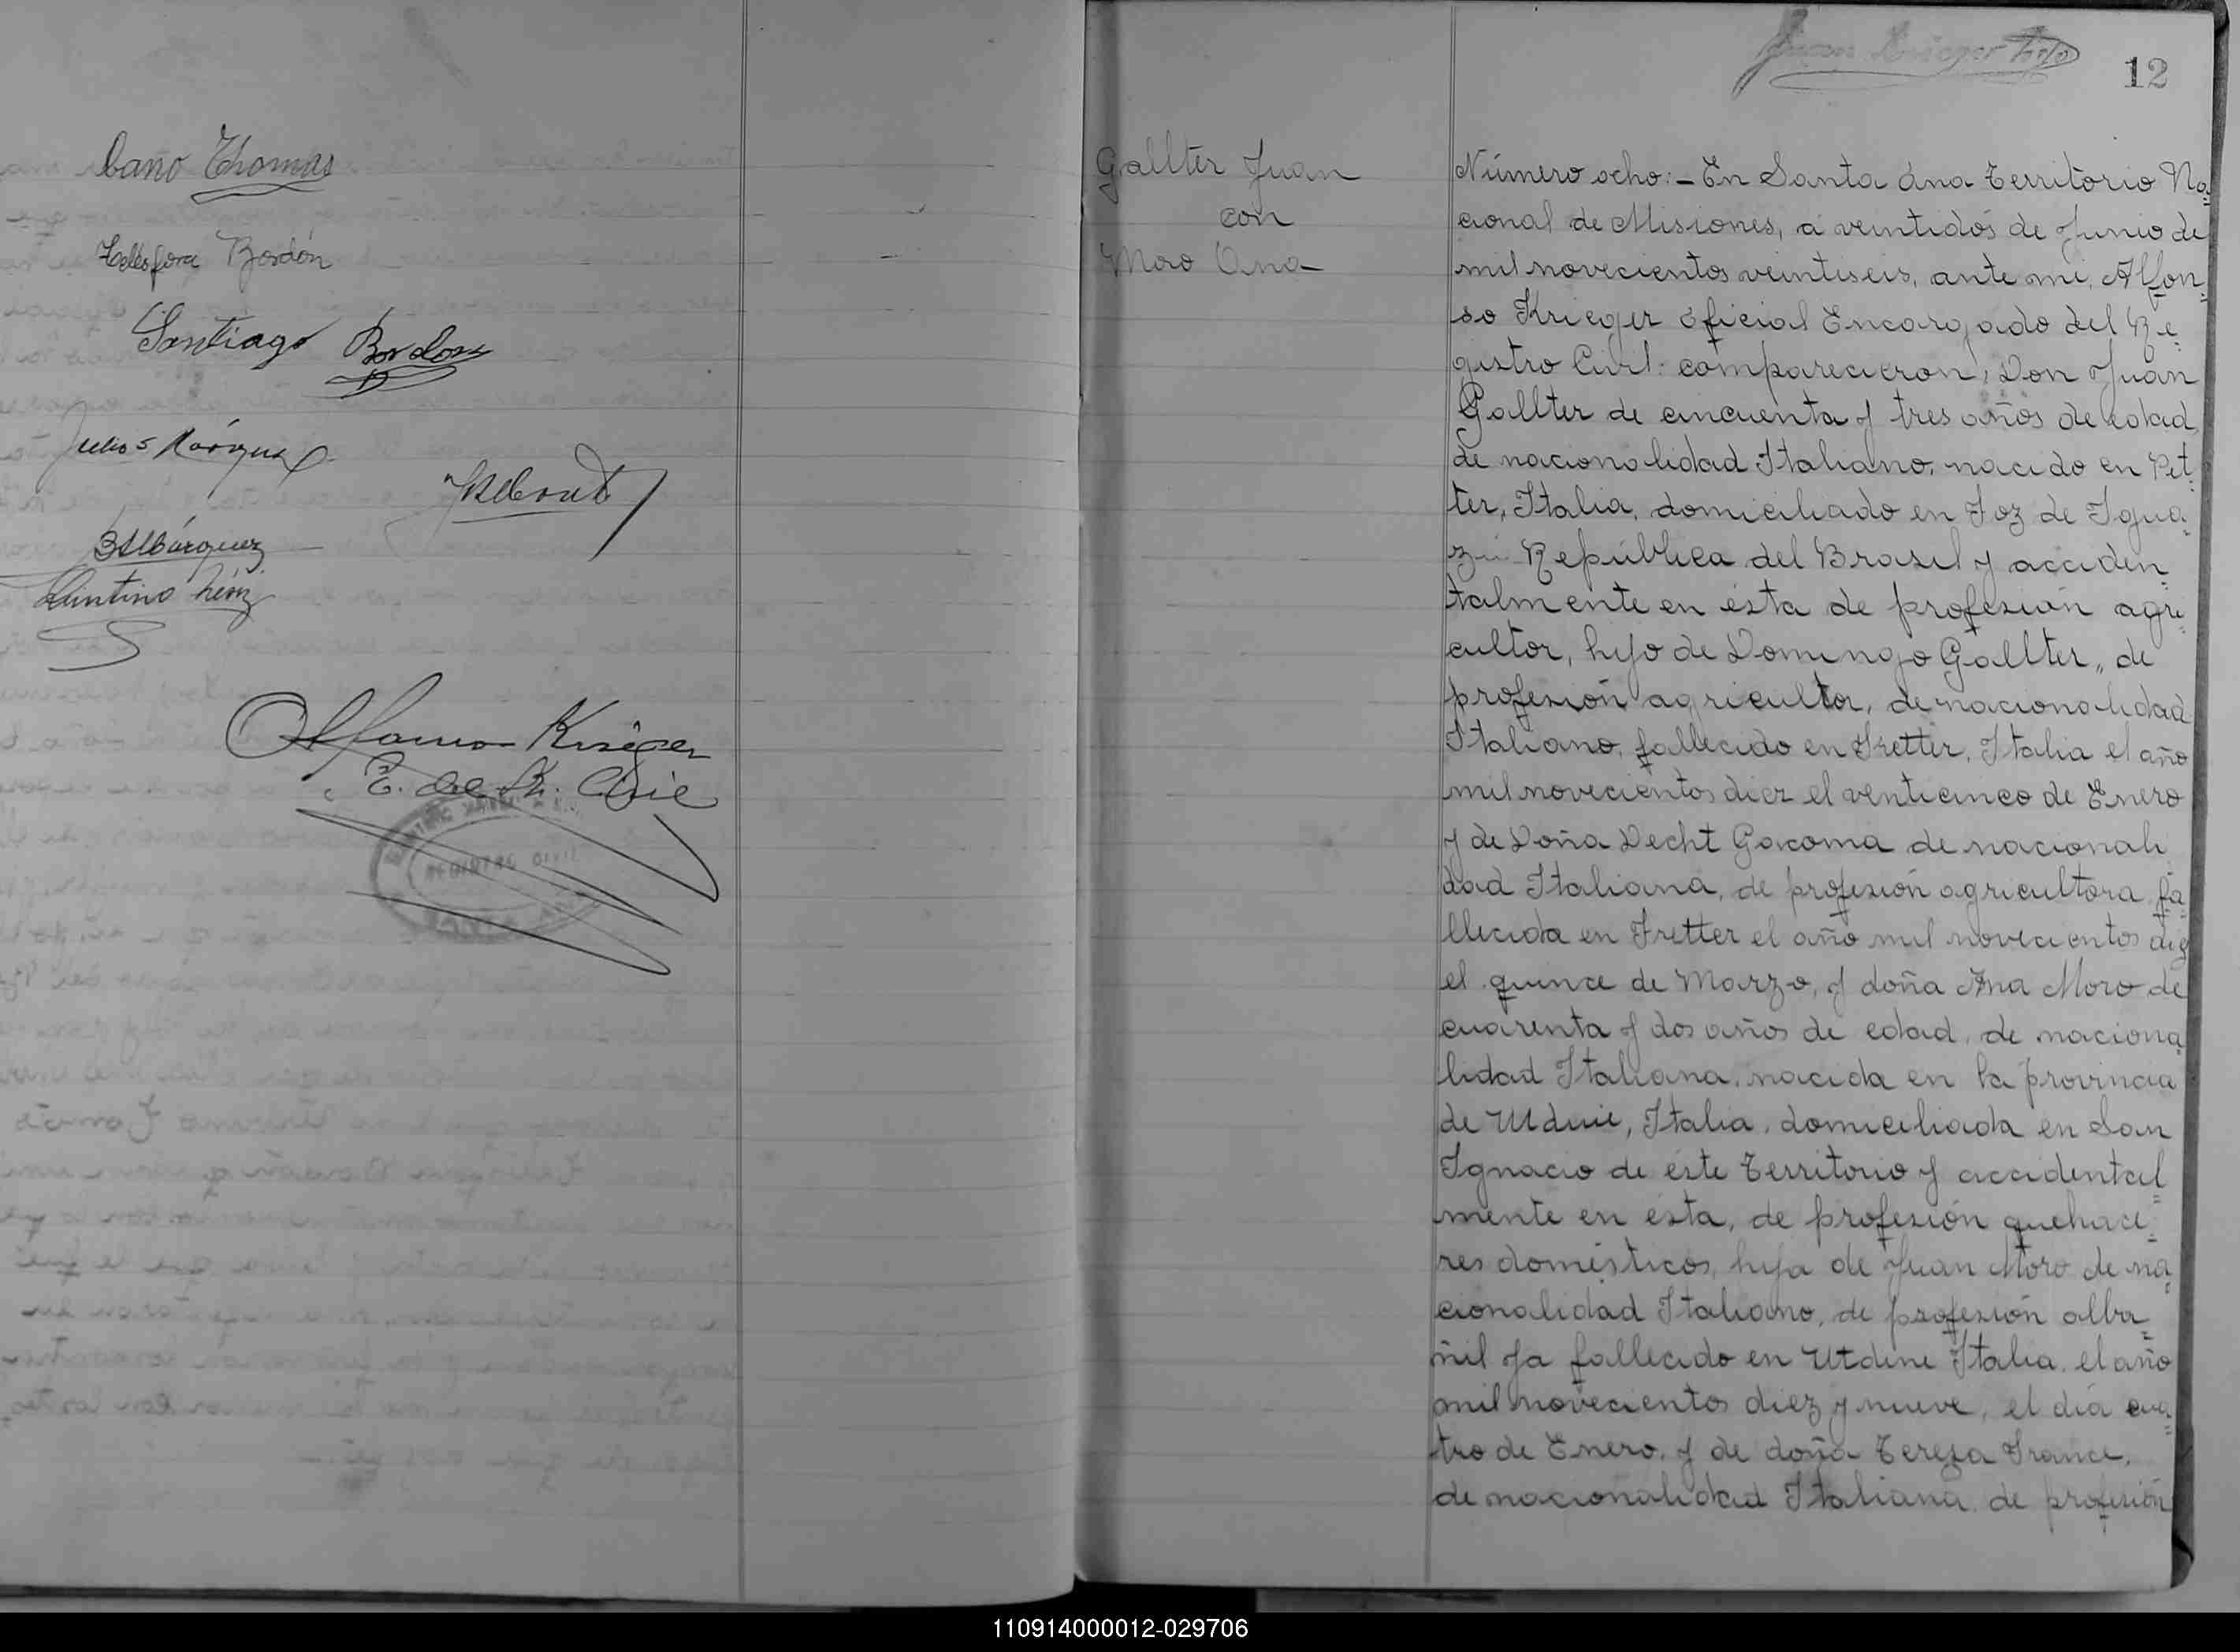 Caño Thomas
Telésfora Bordón
Santiago Bordon
Julio S Márquez
B Albárquez
Alfonso Krieger
E. del R. Civil
REGISTRO CIVIL
SANTA ANA
12
Gallter Juan
con
Moro Ana
Número ocho:- En Santa Ana Territorio Na=
cional de Misiones, a veintidós de Junio de
mil novecientos veintiseis, ante mi, Alfon=
so Krieger oficial Encargado del Re=
gistro Civil: comparecieron, Don Juan
Gallter de cincuenta y tres años de edad,
de nacionalidad Italiano, nacido en Pet=
ter, Italia, domiciliado en Foz de Igua=
zú República del Brasil y acciden=
talmente en ésta de profesión agri=
cultor, hijo de Domingo Gallter, de
profesión agricultor, de nacionalidad
Italiano, fallecido en Fretter, Italia el año
mil novecientos diez el venticinco de Enero
y de Doña Decht Gacoma de nacionali
dad Italiana, de profesión agricultora fa=
llecida en Fretter el año mil novecientos diez
el quince de Marzo, y doña Ana Moro de
cuarenta y dos años de edad, de naciona=
lidad Italiana, nacida en la provincia
de Udine, Italia, domiciliada en San
Ignacio de éste Territorio y accidental=
mente en ésta, de profesión quehace=
res domésticos, hija de Juan Moro de na=
cionalidad Italiano, de profesión alba=
ñil ya fallecido en Utdine Italia, el año
mil novecientos diez y nueve, el día cua=
tro de Enero, y de doña Teresa France,
de nacionalidad Italiana, de profesión
110914000012-029706